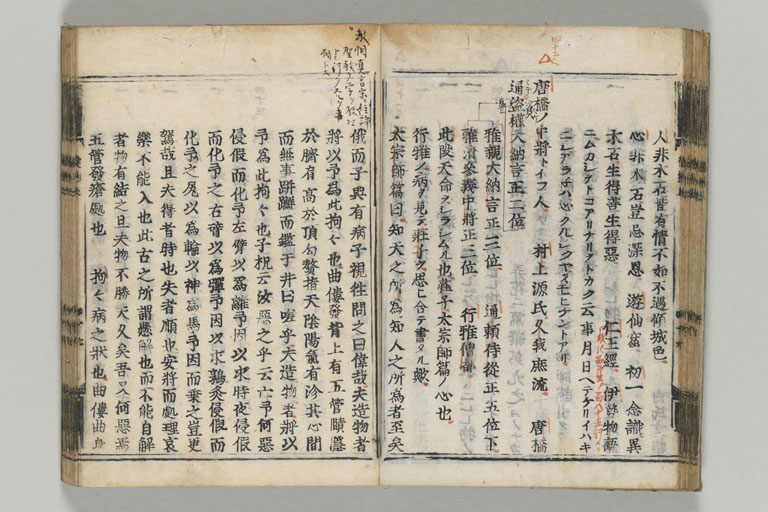 人非木石皆有情不如不遇傾城色
心非木石豈忘深恩　遊仙窟　初一念識異
木石生得善生得惡　仁王經　伊勢物語
ニムカシヲトコアリケリヲトカク云事月日ヘテケリイハキ
ニシアラネハ心クルシクヤヲモヒケントアリ
唐橋ノ中將トイフ人　村上源氏久我庶流　唐橋
通 權大納言正二位
雅親大納言正二位　通頼侍從正五位下
雅清參議中將正三位　行雅僧都
此段天命ヲシラシムル也莊子太宗師篇ノ心也
行雅ノ病ヲ見テ莊子ヲ思ヒ合テ書タル歟
太宗師篇曰知天之所為知人之所為者至矣
俄而子輿有病子祀往問之曰偉哉夫造物者
將以予為此拘〻也曲僂發背上有五管頤隱
於臍肩高於頂句贅指天陰陽氣有沴其心間
而無事跰𨇤而鑑于井曰嗟乎夫造物者將以
予為此拘〻也子祀云汝惡之乎云亡予何惡
侵假而化予左臂以為雞予因以求時夜侵假
而化予之右臂以為彈予因以求鴞炙侵假而
化予之尻以為輪以神為馬予因而乘之豈更
駕哉且夫得者時也失者順也安將而處理哀
樂不能入也此古之所謂懸解也而不能自解
者物有結之且夫物不勝天久矣吾又何惡焉
五管發瘡處也　拘〻病之狀也曲僂曲身